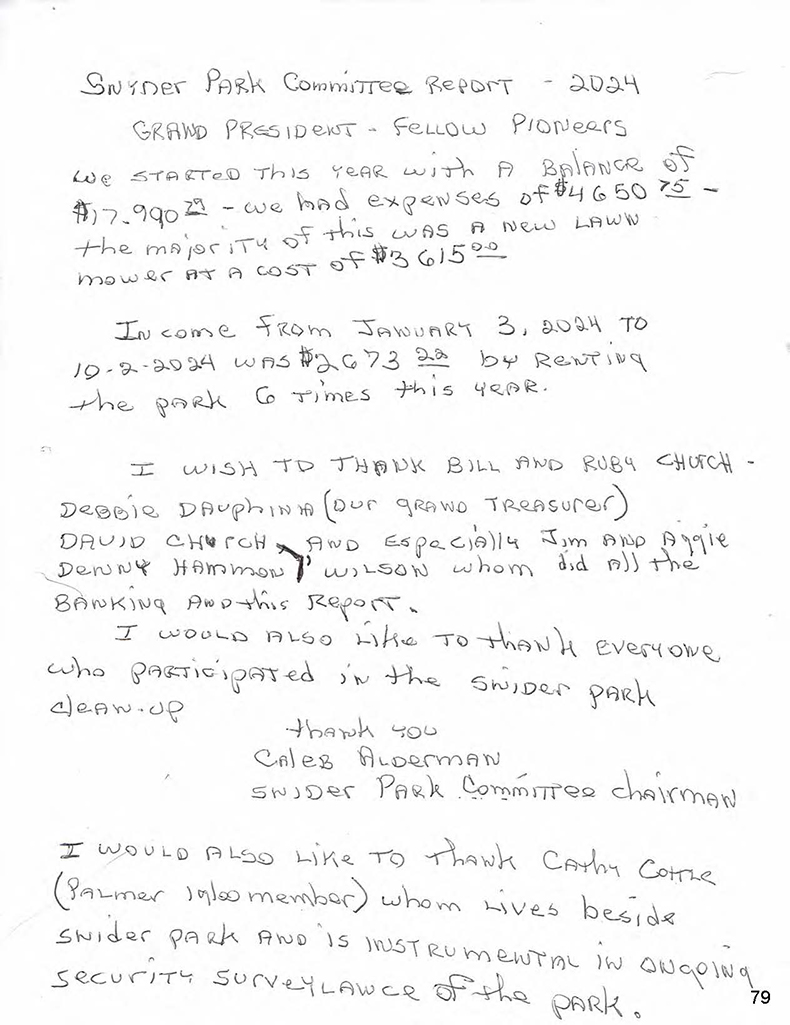 SNYDER PARK COMMITTEE REPORT - 2024
GRAND PRESIDENT - FELLOW PIONEERS
WE STARTED THIS YEAR WITH A BALANCE OF
$17.990 29 - WE HAD EXPENSES OF $4650 75 -
THE MAJORITY OF THIS WAS A NEW LAWN
MOWER AT A COST OF $3615 00
INCOME FROM JANUARY 3, 2024 TO
10-2-2024 WAS $2673 22 BY RENTING
THE PARK 6 TIMES THIS YEAR.
I WISH TO THANK BILL AND RUBY CHURCH -
DEBBIE DAUPHINA (OUR GRAND TREASURER)
DAVID CHURCH, AND ESPACIALLY JIM AND AGGIE
DENNY HAMMON, WILSON WHOM DID ALL THE
BANKING AND THIS REPORT.
I WOULD ALSO LIKE TO THANK EVERYONE
WHO PARTICIPATED IN THE SNIDER PARK
CLEAN-UP
THANK YOU
CALEB ALDERMAN
SNIDER PARK COMMITTEE CHAIRMAN
I WOULD ALSO LIKE TO THANK CATHY COTTLE
(PALMER IGLOO MEMBER) WHOM LIVES BESIDE
SNIDER PARK AND IS INSTRUMENTAL IN ONGOING
SECURITY SURVEYLANCE OF THE PARK.
79